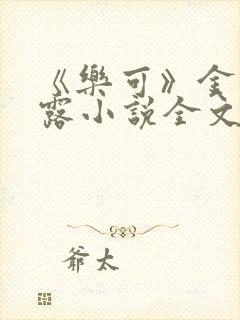 《樂可》金
露小說全文
爺太